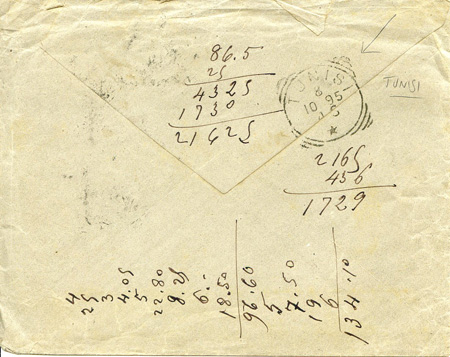 86.5
25
4325
1730
21625
TUNISI
8
10 95
TUNISI
2165
1729
4
25
3
4.05
5
22.80
8.25
6.-
18.50
96.60
5
7.50
19
6
134.10